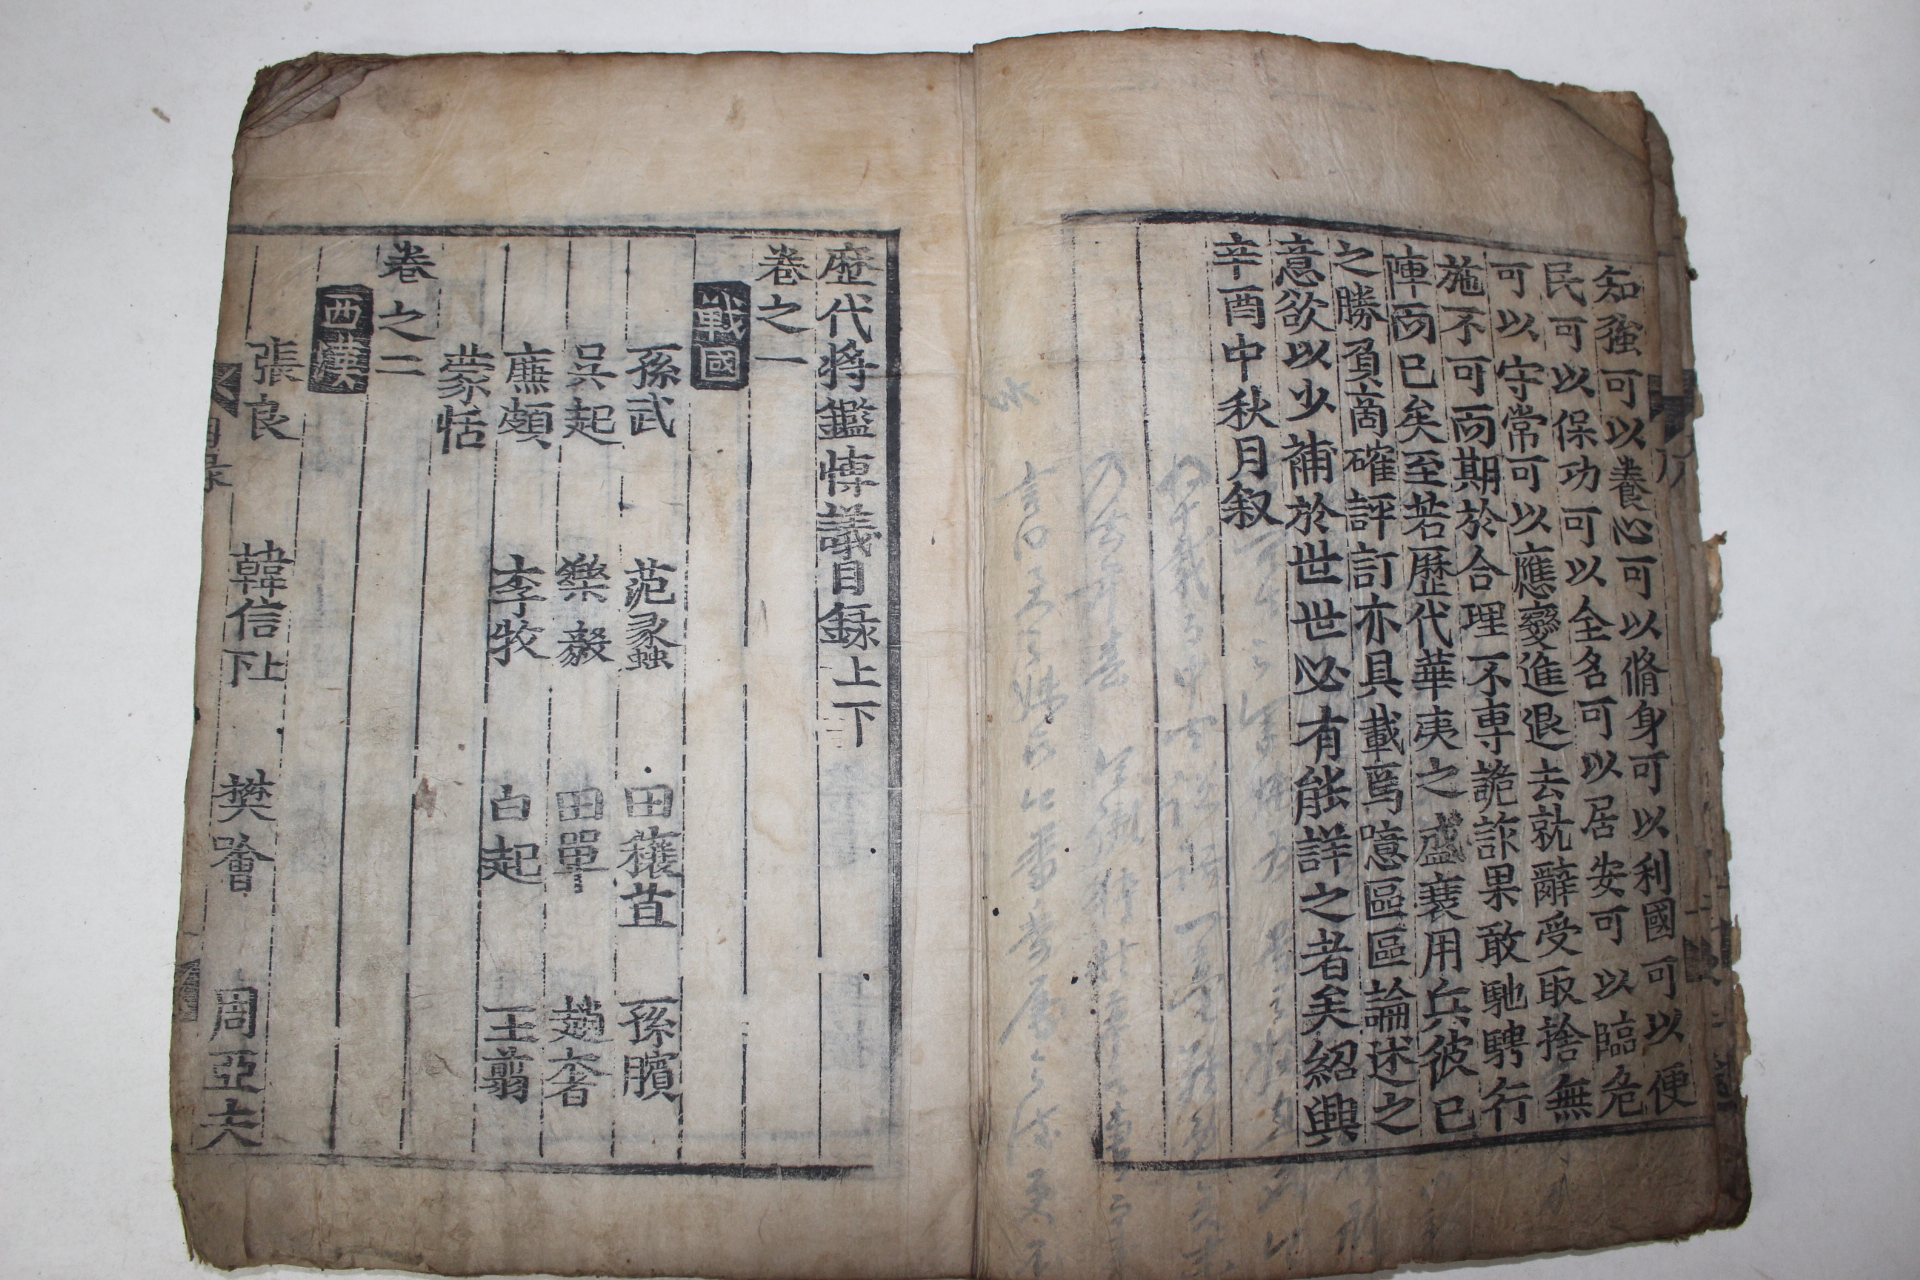 知強可以養心可以脩身可以利國可以便
民可以保功可以全名可以居安可以臨危
可以守常可以應變進退去就辭受取捨無
施不可而期於合理不専詭詐果敢馳騁行
陣而已矣至若歷代華夷之盛衰用兵彼己
之勝負商確評訂亦具載焉噫區區論述之
意欲以少補於世世必有能詳之者矣紹興
辛酉中秋月叙
歷代將鑑愽議目録上下
卷之一
戦國
孫武 范蠡 田穰苴 孫臏
吳起 樂毅 田單 趙奢
廉頗 李牧 白起 王翦
蒙恬
卷之二
西漢
張良 韓信上下 樊噲 周亞夫
目录